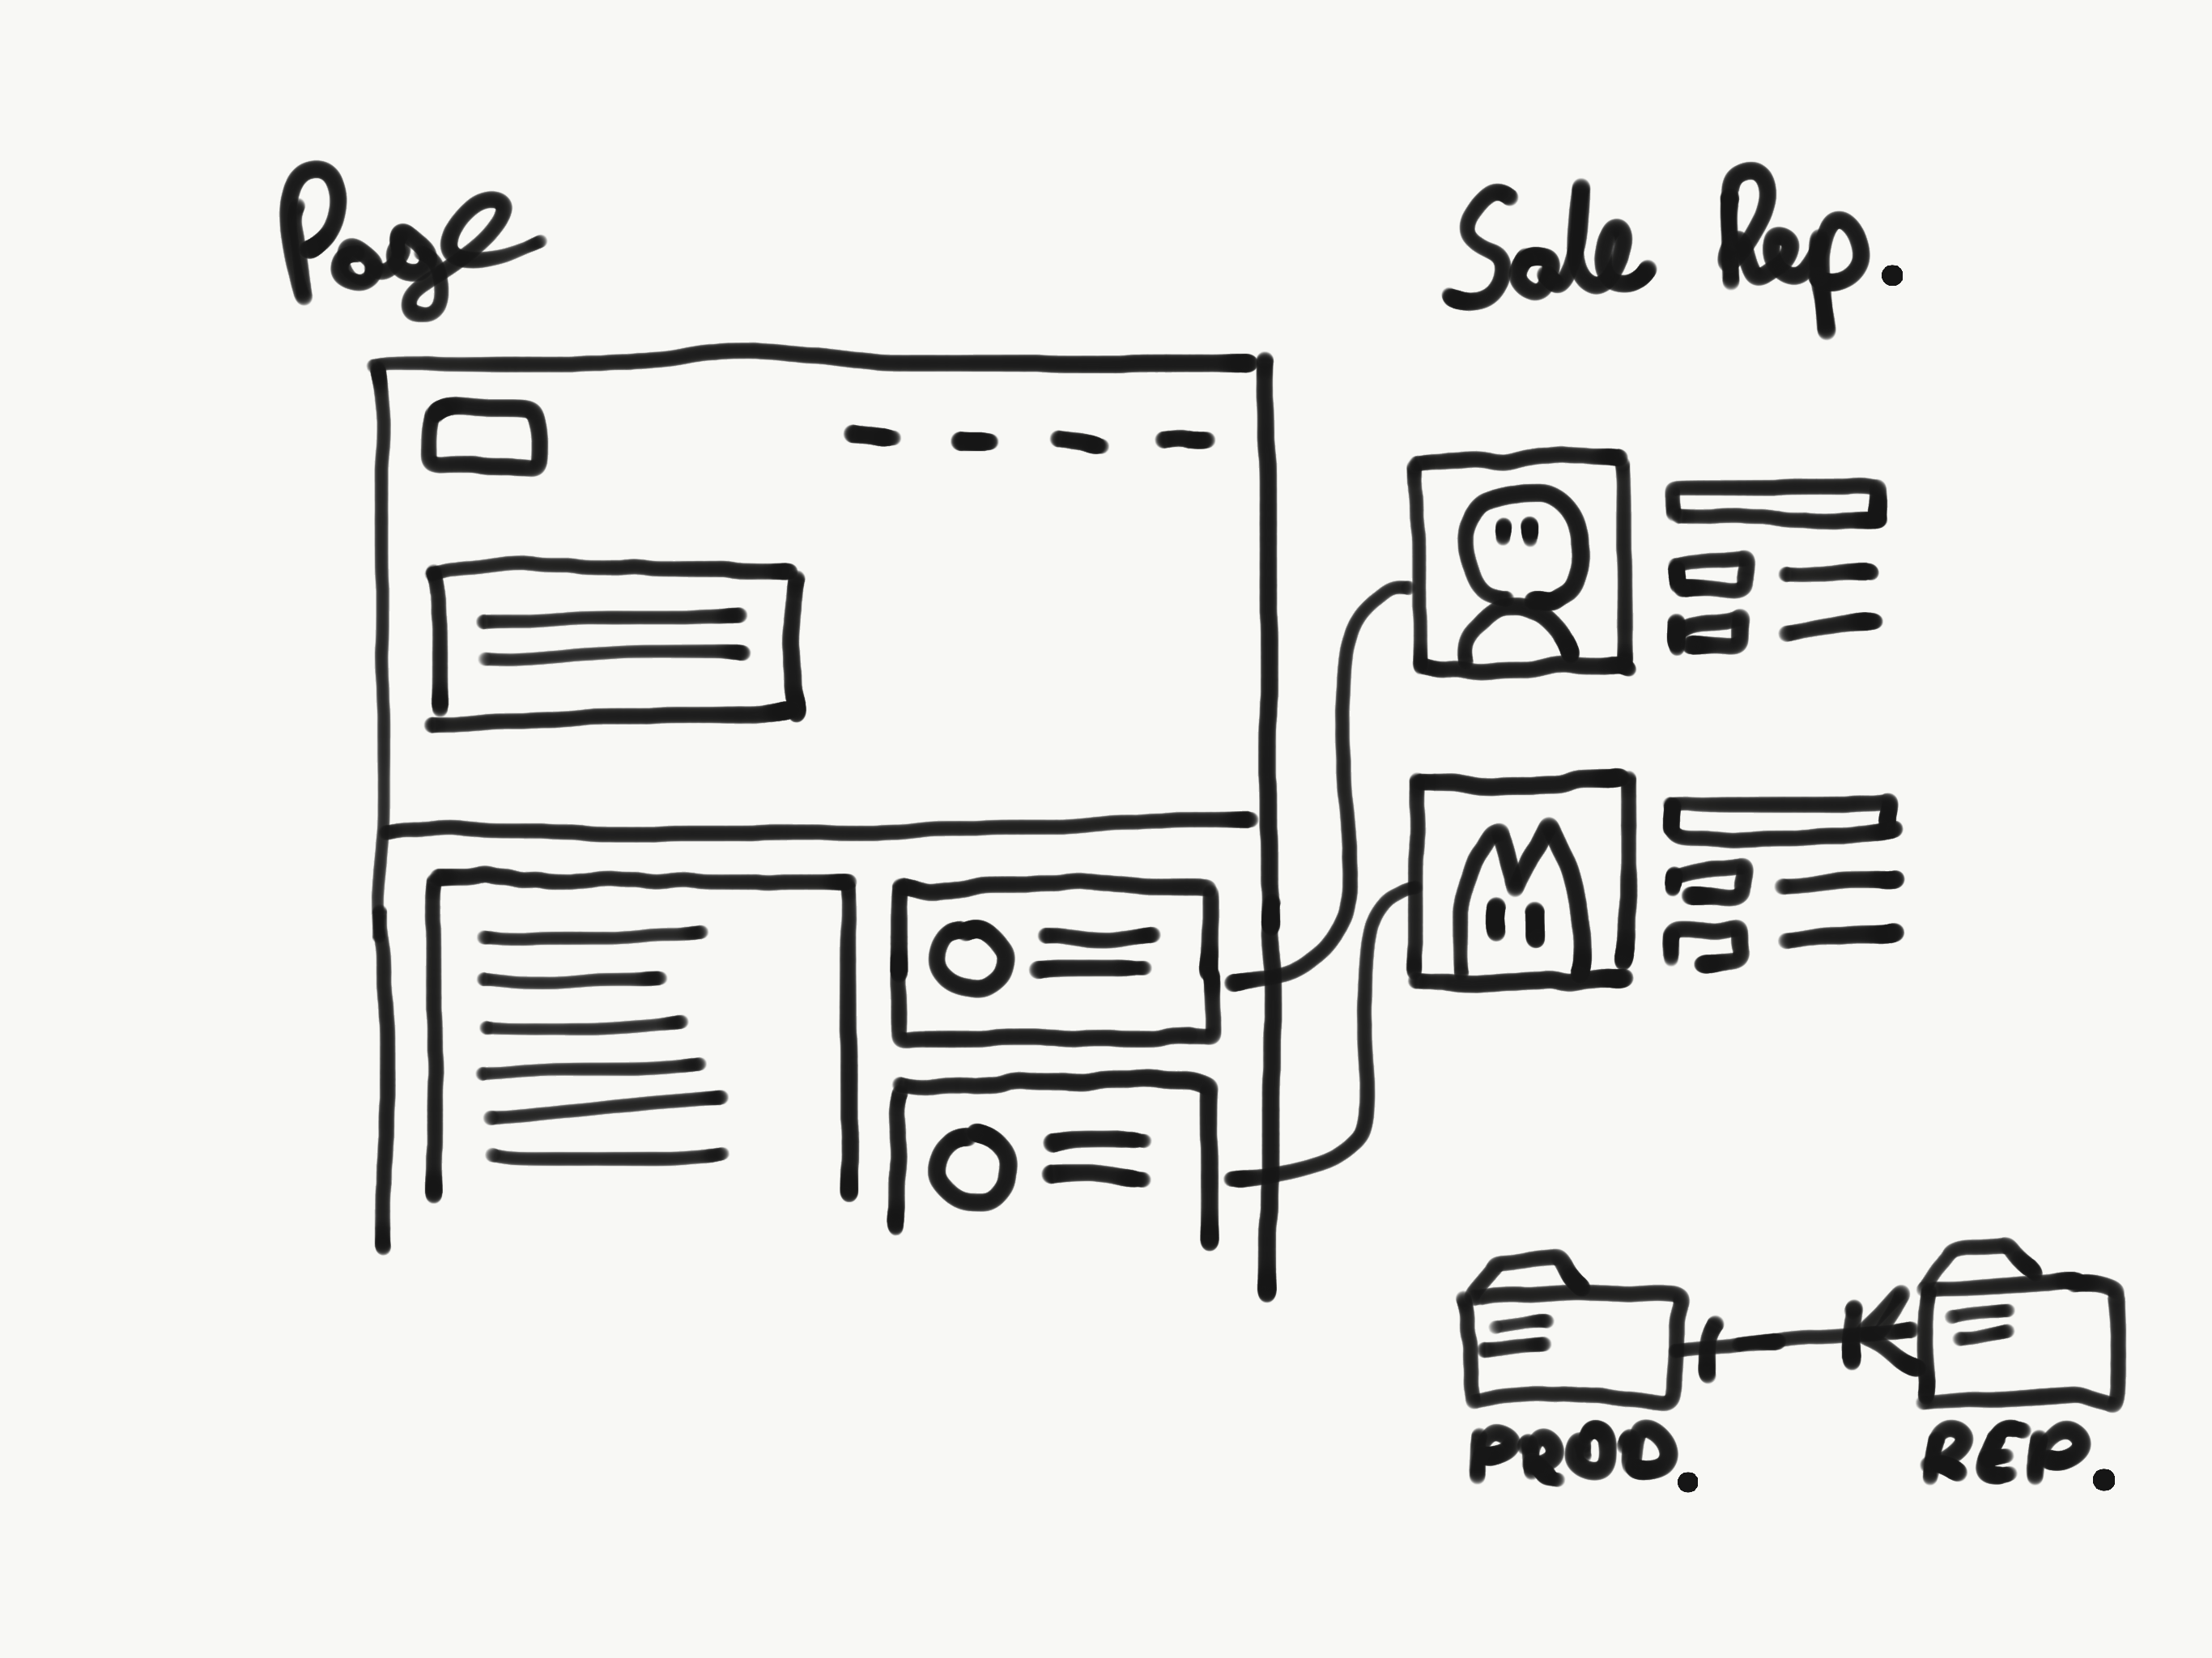 Page
Sale Rep.
PROD.
REP.